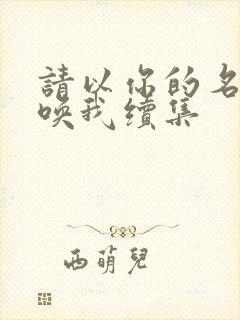 請以你的名
喚我續集
西萌兒